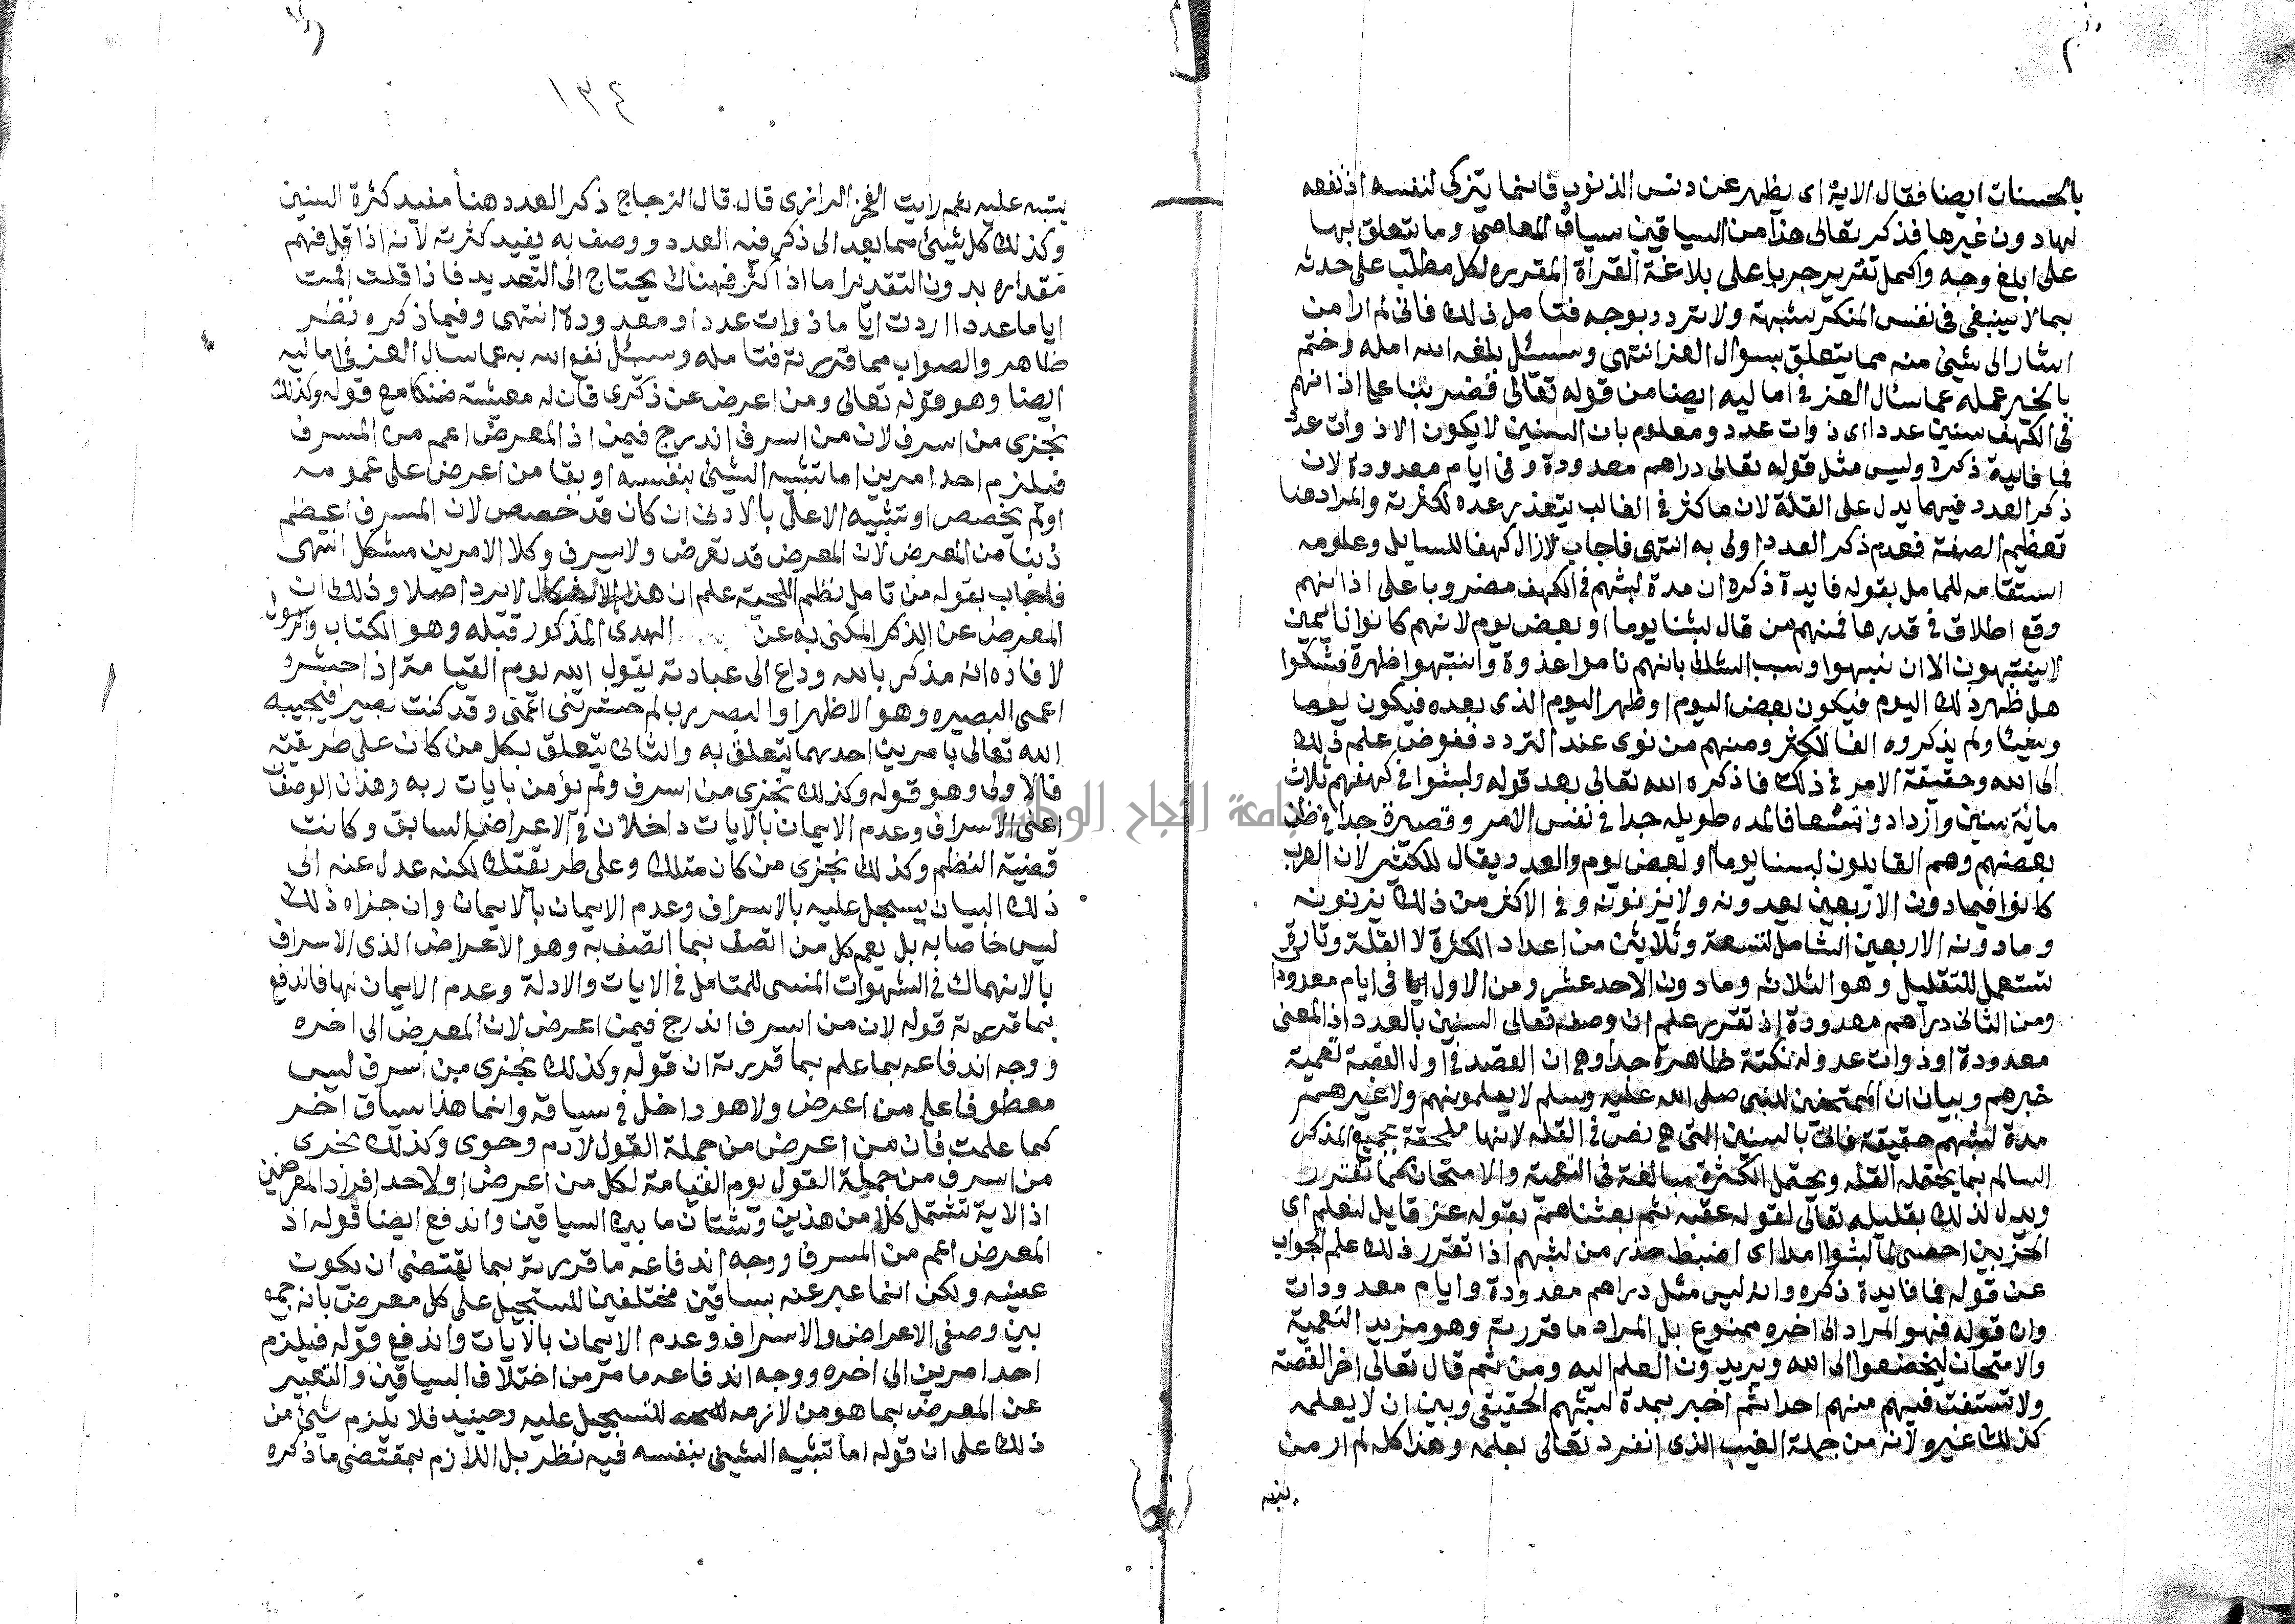 بالحسنات ايضا فقال الاية اى يظهر عن دنس الذنوب فانما يتزكى لنفسه اذ نفعه
لها دون غيرها فذكر تعالى هذا من السياقين سياق المعاصى وما يتعلق بها
على ابلغ وجه واكمل تقرير جريا على بلاغة القرآة المقرره لكل مطلب على حدته
بما لا يبقى فى نفس المنكر شبهة ولا تردد بوجه فتامل ذلك فانى لم ار من
اشار الى شيئ منه مما يتعلق بسوال العز انتهى وسئل بلغه الله امله وختم
بالخير عمله عما سال العز فى اماليه ايضا من قوله تعالى فضربنا على اذانهم
فى الكهف سنين عددا اى ذوات عدد ومعلوم بان السنين لا يكون الا ذوات عدد
فما فايدة ذكره وليس مثل قوله تعالى دراهم معدودة وفى ايام معدودة لان
ذكر العدد فيهما يدل على القلة لان ما كثر فى الغالب يتعذر عده لكثرته والمراد هنا
تعظيم الصفة فعدم ذكر العدد اولى به انتهى فاجاب لازال كهفا للسايل وعلومه
استقامه للمامل بقوله فايدة ذكره ان مدة لبثهم فى الكهف مضروبا على اذانهم
وقع اطلاق فى قدرها فمنهم من قال لبثنا يوما او بعض يوم لانهم كانوا نايمين
لا ينتبهون الا ان نبهوا وسبب الشك بانهم ناموا غدوة وانتبهوا ظهرة فشكوا
هل ظهر ذلك اليوم فيكون بعض اليوم او ظهر اليوم الذى بعده فيكون يوما
وبعضا ولم يذكروه الغا للكثر ومنهم من نوى عند التردد ففوض علم ذلك
الى الله وحقيقة الامر فى ذلك ما ذكره الله تعالى بعد قوله ولبثوا فى كهفهم ثلاث
ماية سنين وازدادوا تسعا فالمده طويله جدا فى نفس الامر وقصيرة جدا فى ظن
بعضهم وهم القايلون لبثنا يوما او بعض يوم والعدد يقال للكثير لان العرب
كانوا فيما دون الاربعين يعدونه ولا يزنونه وفى الاكثر من ذلك يزنونه
وما دونه الاربعين الشامل لتسعة وثلاثين من اعداد الكثرة لا القلة وتارة
تستعمل للتقليل وهو الثلاثه وما دون الاحد عشر ومن الاول فى ايام معدودا
ومن الثانى دراهم معدودة اذ تقرر علم ان وصفه تعالى السنين بالعدد اذ المعنى
معدودة او ذوات عدد له نكتة ظاهرة جدا وهى ان القصد فى اول القصة تعمية
خبرهم وبيان ان الممتحنين للنبى صلى الله عليه وسلم لا يعلمونهم ولا غيرهم
مدة لبثهم حقيقة فاتى بالسنين التى هى نص فى القله لانها ملحقة بجمع المذكر
السالم بما يحتمله القله ويحتمل الكثرة مبالغة فى التعمية والامتحان كما تقرر
ويدل لذلك بقليله تعالى لقوله عقبه ثم بعثناهم بقوله عز قايل لنعلم اى
الحزبين احصى لما لبثوا امدا اى اضبط حذر من لبثهم اذا تقرر ذلك علم الجواب
عن قوله فما فايدة ذكره وانه ليس مثل دراهم معدودة وايام معدودات
وان قوله فهو المراد الى اخره ممنوع بل المراد ما قررته وهو مزيد التعمية
والامتحان ليخضعوا الى الله ويريدون العلم اليه ومن ثم قال تعالى اخر القصة
ولا تستفت فيهم منهم احدا ثم اخبر بمدة لبثهم الحقيقى وبين ان لا يعلمه
كذلك غيره لانه من جملة الغيب الذى انفرد تعالى بعلمه وهذا كله لم ار من
ينبه
١٣٤
ينبه عليه نعم رايت الفخر الرازى قال قال الزجاج ذكر العدد هنا مفيد كثرة السنين
وكذلك كل شيئ مما يعد الى ذكر فيه العدد ووصف به يفيد كثرته لانه اذا قل فهم
مقداره بدون التقدير اما اذا كثر فهناك يحتاج الى التعديد فاذا قلت اقمت
اياما عددا اردت اياما ذوات عدد او معدودة انتهى وفيما ذكره نظر
ظاهر والصواب مما قررته فتامله وسئل نفع الله به عما سال العز فى اماليه
ايضا وهو قوله تعالى ومن اعرض عن ذكرى فان له معيشة ضنكا مع قوله وكذلك
نجزى من اسرف لان من اسرف اندرج فيمن اذ المعرض اعم من المسرف
فيلزم احد امرين اما تشبيه الشيئ بنفسه او بقا من اعرض على عمومه
او لم يخصص او تشبيه الاعلى بالادنى ان كان قد خصص لان المسرف اعظم
ذنبا من المعرض لان المعرض قد تعرض ولا يسرف وكلا الامرين مشكل انتهى
فاجاب بقوله من تامل نظم الاية علم ان هذا الاشكال لا يرد اصلا وذلك ان
المعرض عن الذكر المكنى به عن الهدى المذكور قبله وهو الكتاب والرسول
لافاده انه مذكر بالله وداع الى عبادته يقول لله يوم القيامة اذا حشره
اعمى البصيره وهو الاظهر او البصر رب لم حشرتنى اعمى وقد كنت بصيرا فيجيبه
الله تعالى بامرين احدهما يتعلق به والثانى يتعلق بكل من كان على طريقته
فالاولى وهو قوله وكذلك نجزى من اسرف ولم يؤمن بايات ربه وهذان الوصفان
اعنى الاسراف وعدم الايمان بالايات داخلان فى الاعراض السابق وكانت
قضية النظم وكذلك نجزى من كان مثلك وعلى طريقتك لكنه عدل عنه الى
ذلك البيان يسجل عليه بالاسراف وعدم الايمان بالايمان وان جزاه ذلك
ليس خاصا به بل يعم كل من اتصف بما اتصف به وهو الاعراض الذى الاسراف
بالانهماك فى الشهوات المنسى للمتامل فى الايات والادلة وعدم الايمان بها فاندفع
بما قررته قوله لان من اسرف اندرج فيمن اعرض لان المعرض الى اخره
ووجه اندفاعه بما علم بما قدرته ان قوله وكذلك نجزى من اسرف ليس
معطوفا على من اعرض ولا هو داخل فى سياقه وانما هذا سياق اخر
كما علمت فان من اعرض من جملة القول لادم وحوى وكذلك نجزى
من اسرف من جملة القول يوم القيامة لكل من اعرض او لاحد افراد المعرضين
اذ الاية تشتمل كلا من هذين وشتان ما بين السياقين واندفع ايضا قوله اذ
المعرض اعم من المسرف ووجه اندفاعه ما قررته بما يقتضى ان يكون
عينه ولكن انما عبر عنه بسياقين مختلفين للتسجيل على كل معرض بانه جمع
بين وصفى الاعراض والاسراف وعدم الايمان بالايات واندفع قوله فيلزم
احد امرين الى اخره ووجه اندفاعه ما مر من اختلاف السياقين والتعبير
عن المعرض بما هو من لازمه للتسجيل عليه وحينيذ فلا يلزم شيئ من
ذلك على ان قوله اما تشبيه الشيئ بنفسه فيه نظر بل اللازم بمقتضى ما ذكره
جامعة النجاح الوطنية